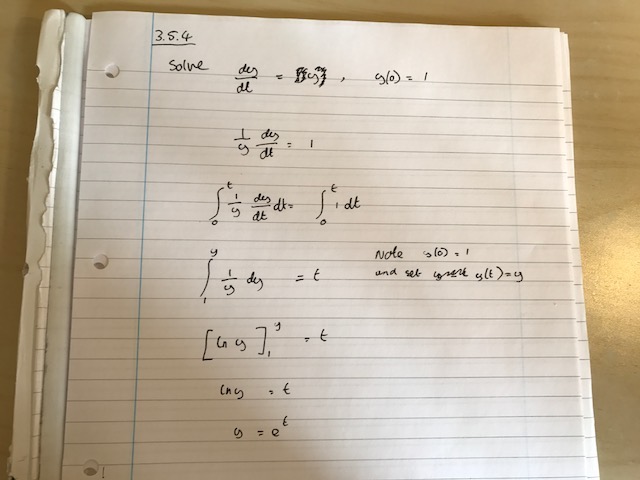 3.5.4
Solve dy/dt = y, y(0) = 1
1/y dy/dt = 1
∫₀ᵗ 1/y dy/dt dt = ∫₀ᵗ 1 dt
∫₁ʸ 1/y dy = t Note y(0) = 1
and set y(t) = y
[ln y]₁ʸ = t
ln y = t
y = eᵗ